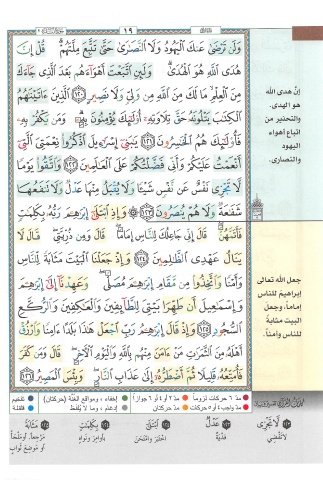 ١٩
وَلَن تَرْضَىٰ عَنكَ ٱلْيَهُودُ وَلَا ٱلنَّصَٰرَىٰ حَتَّىٰ تَتَّبِعَ مِلَّتَهُمْ ۗ قُلْ إِنَّ
هُدَى ٱللَّهِ هُوَ ٱلْهُدَىٰ ۗ وَلَئِنِ ٱتَّبَعْتَ أَهْوَآءَهُم بَعْدَ ٱلَّذِى جَآءَكَ
مِنَ ٱلْعِلْمِ ۙ مَا لَكَ مِنَ ٱللَّهِ مِن وَلِىٍّ وَلَا نَصِيرٍ ١٢٠ ٱلَّذِينَ ءَاتَيْنَٰهُمُ
ٱلْكِتَٰبَ يَتْلُونَهُۥ حَقَّ تِلَاوَتِهِۦٓ أُو۟لَٰٓئِكَ يُؤْمِنُونَ بِهِۦ ۗ وَمَن يَكْفُرْ بِهِۦ
فَأُو۟لَٰٓئِكَ هُمُ ٱلْخَٰسِرُونَ ١٢١ يَٰبَنِىٓ إِسْرَٰٓءِيلَ ٱذْكُرُوا۟ نِعْمَتِىَ ٱلَّتِىٓ
أَنْعَمْتُ عَلَيْكُمْ وَأَنِّى فَضَّلْتُكُمْ عَلَى ٱلْعَٰلَمِينَ ١٢٢ وَٱتَّقُوا۟ يَوْمًا
لَّا تَجْزِى نَفْسٌ عَن نَّفْسٍ شَيْـًٔا وَلَا يُقْبَلُ مِنْهَا عَدْلٌ وَلَا تَنفَعُهَا
شَفَٰعَةٌ وَلَا هُمْ يُنصَرُونَ ١٢٣ ۞ وَإِذِ ٱبْتَلَىٰٓ إِبْرَٰهِۦمَ رَبُّهُۥ بِكَلِمَٰتٍ
فَأَتَمَّهُنَّ ۖ قَالَ إِنِّى جَاعِلُكَ لِلنَّاسِ إِمَامًا ۖ قَالَ وَمِن ذُرِّيَّتِى ۖ قَالَ لَا
يَنَالُ عَهْدِى ٱلظَّٰلِمِينَ ١٢٤ وَإِذْ جَعَلْنَا ٱلْبَيْتَ مَثَابَةً لِّلنَّاسِ
وَأَمْنًا وَٱتَّخِذُوا۟ مِن مَّقَامِ إِبْرَٰهِۦمَ مُصَلًّى ۖ وَعَهِدْنَآ إِلَىٰٓ إِبْرَٰهِۦمَ
وَإِسْمَٰعِيلَ أَن طَهِّرَا بَيْتِىَ لِلطَّآئِفِينَ وَٱلْعَٰكِفِينَ وَٱلرُّكَّعِ
ٱلسُّجُودِ ١٢٥ وَإِذْ قَالَ إِبْرَٰهِۦمُ رَبِّ ٱجْعَلْ هَٰذَا بَلَدًا ءَامِنًا وَٱرْزُقْ
أَهْلَهُۥ مِنَ ٱلثَّمَرَٰتِ مَنْ ءَامَنَ مِنْهُم بِٱللَّهِ وَٱلْيَوْمِ ٱلْءَاخِرِ ۖ قَالَ وَمَن كَفَرَ
فَأُمَتِّعُهُۥ قَلِيلًا ثُمَّ أَضْطَرُّهُۥٓ إِلَىٰ عَذَابِ ٱلنَّارِ ۖ وَبِئْسَ ٱلْمَصِيرُ ١٢٦
إن هدى الله
هو الهدى.
والتحذير من
اتباع أهواء
اليهود
والنصارى.
جعل الله تعالى
إبراهيم للناس
إماماً، وجعل
البيت مثابة
للناس وأمناً.
مد ٦ حركات لزوماً مد ٢ أو ٤ أو ٦ جوازاً إخفاء، ومواقع الغنّة (حركتان) تفخيم
مد واجب ٤ أو ٥ حركات مد حركتان إدغام، وما لا يُلفظ قلقلة
لَا تَجْزِي
لا تقضي
عَدْلٌ
فدية
ابْتَلَى
اختبر وامتحن
بِكَلِمَاتٍ
بأوامر ونواهٍ
مَثَابَةً
مرجعاً، أو ملجأً،
أو موضع ثواب